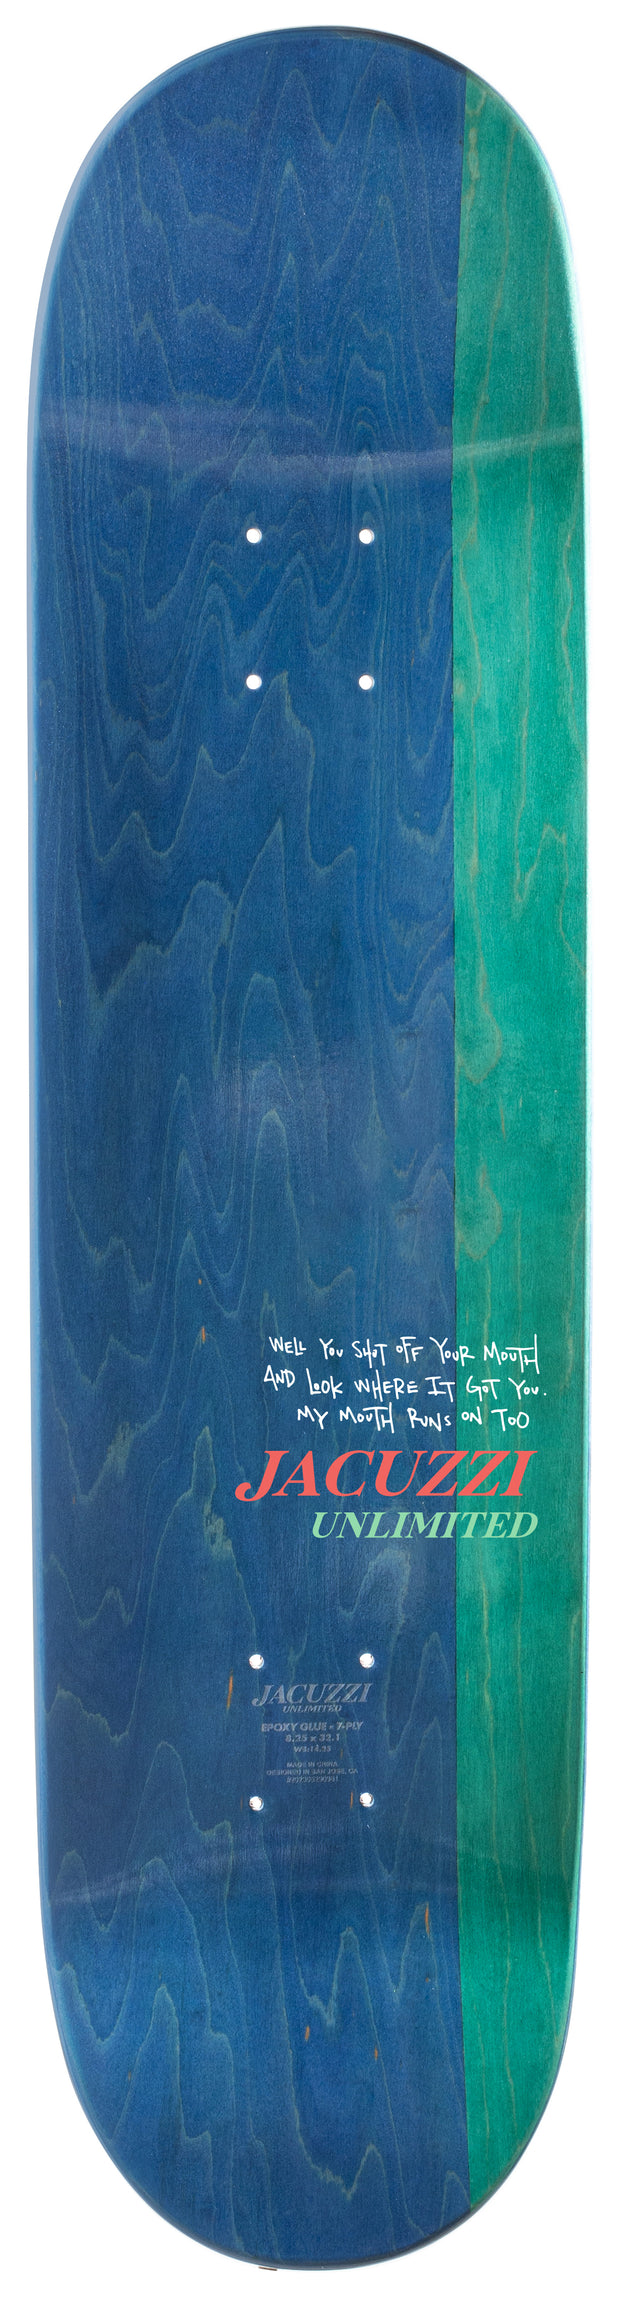 WELL YOU SHUT OFF YOUR MOUTH
AND LOOK WHERE IT GOT YOU.
MY MOUTH RUNS ON TOO
JACUZZI
UNLIMITED
JACUZZI
UNLIMITED
EPOXY GLUE • 7-PLY
8.25 x 32.1
WB:14.25
MADE IN CHINA
DESIGNED IN SAN JOSE, CA